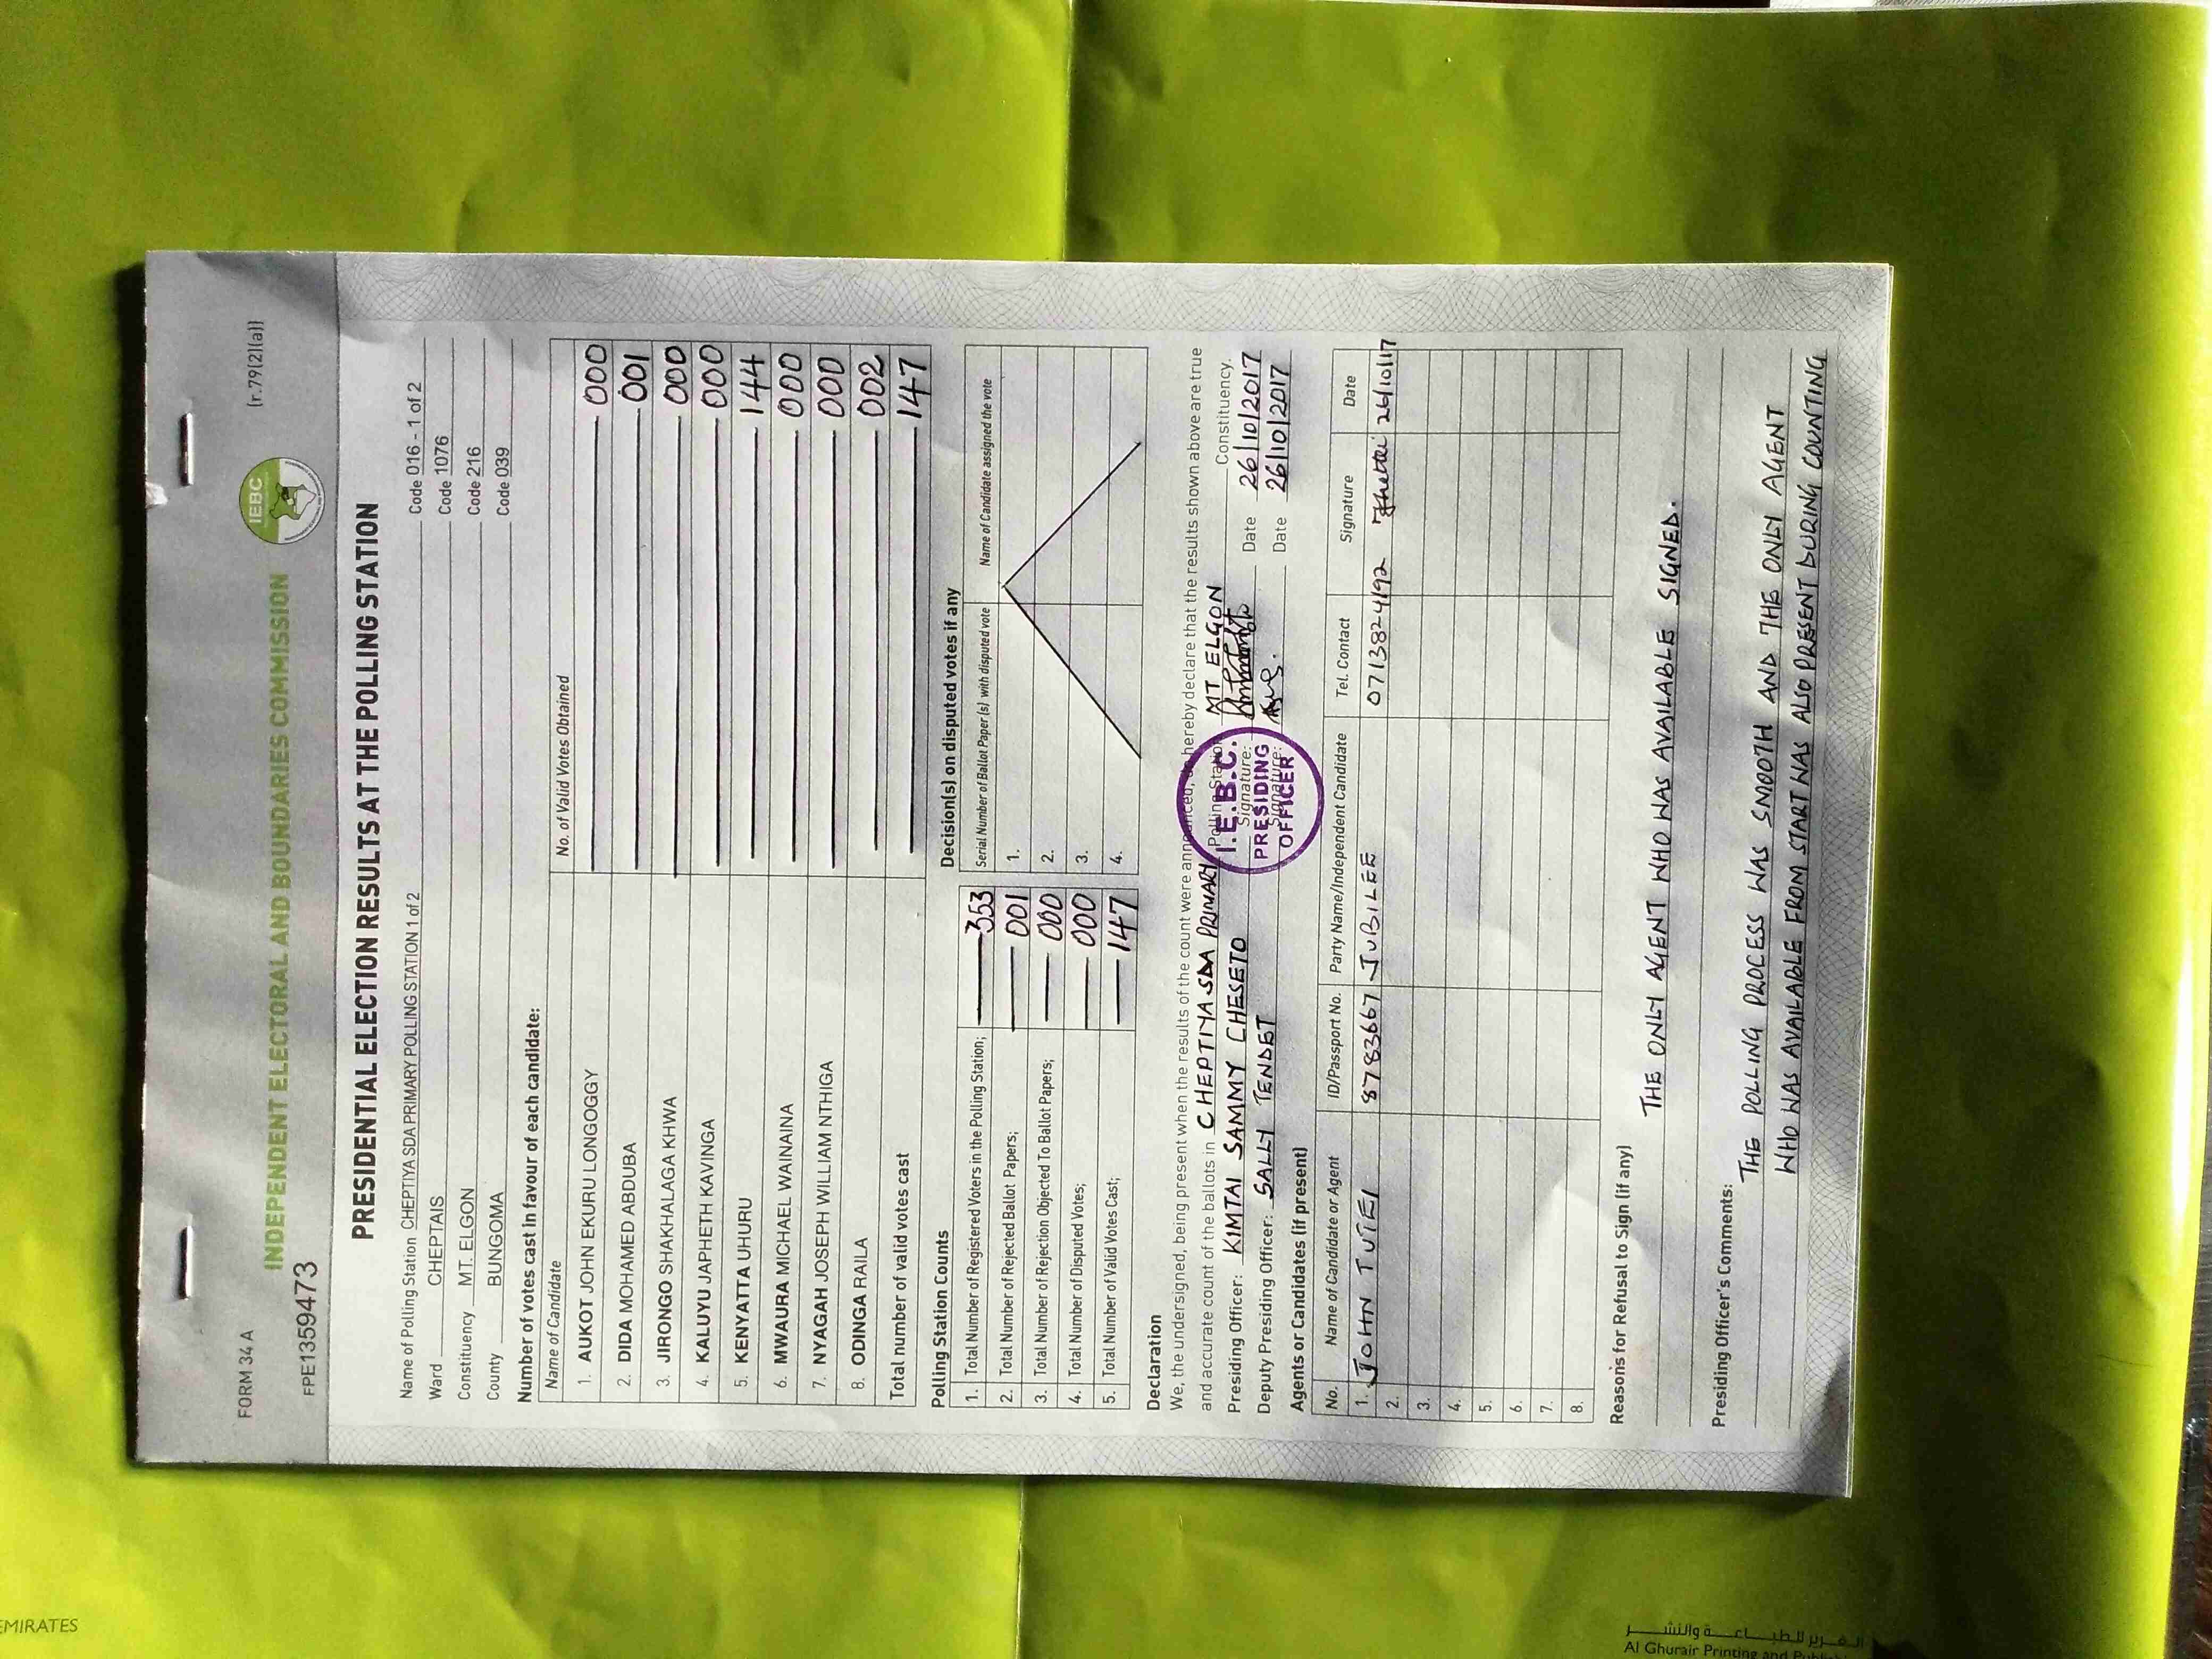 FORM 34 A
(r.79(2)(a))
FPE1359473
INDEPENDENT ELECTORAL AND BOUNDARIES COMMISSION
IEBC
PRESIDENTIAL ELECTION RESULTS AT THE POLLING STATION
Name of Polling Station CHEPTIYA SDA PRIMARY POLLING STATION 1 of 2 Code 016 - 1 of 2
Ward CHEPTAIS Code 1076
Constituency MT. ELGON Code 216
County BUNGOMA Code 039
Number of votes cast in favour of each candidate:
Name of Candidate No. of Valid Votes Obtained
1. AUKOT JOHN EKURU LONGOGGY 000
2. DIDA MOHAMED ABDUBA 001
3. JIRONGO SHAKHALAGA KHWA 000
4. KALUYU JAPHETH KAVINGA 000
5. KENYATTA UHURU 144
6. MWAURA MICHAEL WAINAINA 000
7. NYAGAH JOSEPH WILLIAM NTHIGA 000
8. ODINGA RAILA 002
Total number of valid votes cast 147
Polling Station Counts
1. Total Number of Registered Voters in the Polling Station; 353
2. Total Number of Rejected Ballot Papers; 001
3. Total Number of Rejection Objected To Ballot Papers; 000
4. Total Number of Disputed Votes; 000
5. Total Number of Valid Votes Cast; 147
Decision(s) on disputed votes if any
Serial Number of Ballot Paper (s) with disputed vote Name of Candidate assigned the vote
1.
2.
3.
4.
Declaration
We, the undersigned, being present when the results of the count were announced, do hereby declare that the results shown above are true
and accurate count of the ballots in CHEPTIYA SDA PRIMARY Polling Station MT ELGON Constituency.
Presiding Officer: KIMTAI SAMMY CHESETO Signature: Date 26/10/2017
Deputy Presiding Officer: SALLY TENDET Signature: Date 26/10/2017
I.E.B.C.
PRESIDING
OFFICER
Agents or Candidates (if present)
No. Name of Candidate or Agent ID/Passport No. Party Name/Independent Candidate Tel. Contact Signature Date
1. JOHN TUTEI 8783667 JUBILEE 0713824192 26/10/17
2.
3.
4.
5.
6.
7.
8.
Reasons for Refusal to Sign (if any)
THE ONLY AGENT WHO WAS AVAILABLE SIGNED.
Presiding Officer's Comments:
THE POLLING PROCESS WAS SMOOTH AND THE ONLY AGENT
WHO WAS AVAILABLE FROM START WAS ALSO PRESENT DURING COUNTING
EMIRATES
الغرير للطباعة والنشر
Al Ghurair Printing and